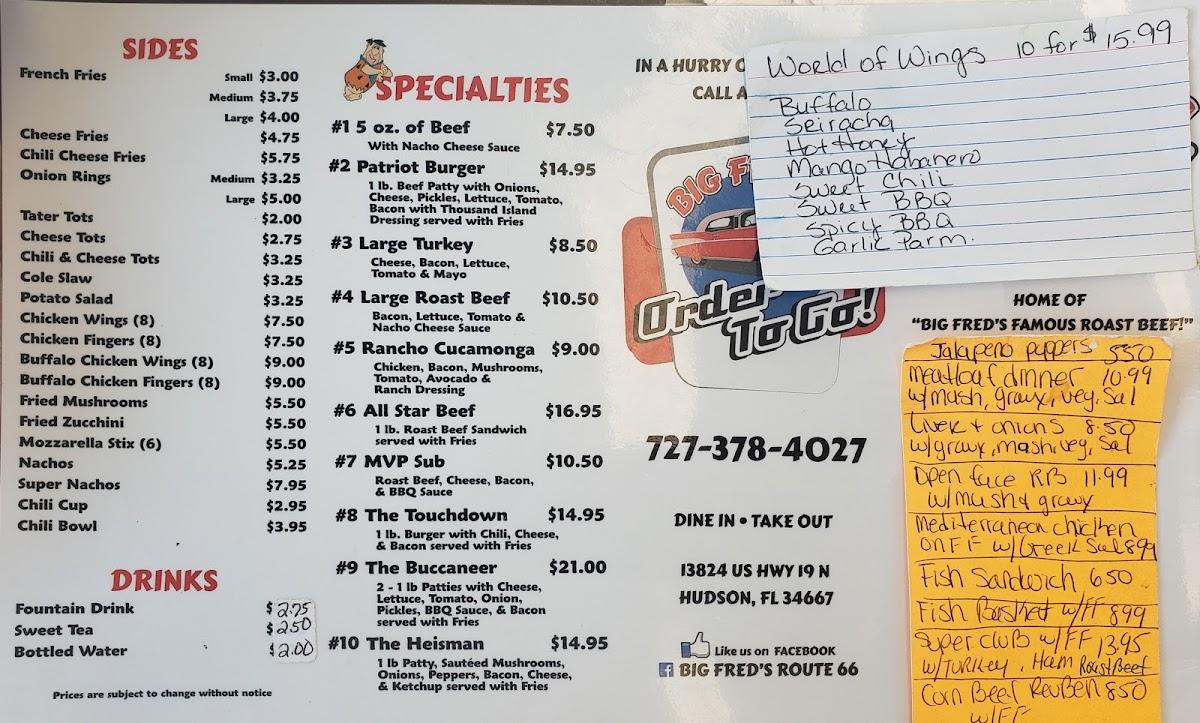 SIDES
French Fries Small $3.00
Medium $3.75
Large $4.00
Cheese Fries $4.75
Chili Cheese Fries $5.75
Onion Rings Medium $3.25
Large $5.00
Tater Tots $2.00
Cheese Tots $2.75
Chili & Cheese Tots $3.25
Cole Slaw $3.25
Potato Salad $3.25
Chicken Wings (8) $7.50
Chicken Fingers (8) $7.50
Buffalo Chicken Wings (8) $9.00
Buffalo Chicken Fingers (8) $9.00
Fried Mushrooms $5.50
Fried Zucchini $5.50
Mozzarella Stix (6) $5.50
Nachos $5.25
Super Nachos $7.95
Chili Cup $2.95
Chili Bowl $3.95
DRINKS
Fountain Drink $2.75
Sweet Tea $2.50
Bottled Water $2.00
Prices are subject to change without notice
SPECIALTIES
#1 5 oz. of Beef $7.50
With Nacho Cheese Sauce
#2 Patriot Burger $14.95
1 lb. Beef Patty with Onions,
Cheese, Pickles, Lettuce, Tomato,
Bacon with Thousand Island
Dressing served with Fries
#3 Large Turkey $8.50
Cheese, Bacon, Lettuce,
Tomato & Mayo
#4 Large Roast Beef $10.50
Bacon, Lettuce, Tomato &
Nacho Cheese Sauce
#5 Rancho Cucamonga $9.00
Chicken, Bacon, Mushrooms,
Tomato, Avocado &
Ranch Dressing
#6 All Star Beef $16.95
1 lb. Roast Beef Sandwich
served with Fries
#7 MVP Sub $10.50
Roast Beef, Cheese, Bacon,
& BBQ Sauce
#8 The Touchdown $14.95
1 lb. Burger with Chili, Cheese,
& Bacon served with Fries
#9 The Buccaneer $21.00
2 - 1 lb Patties with Cheese,
Lettuce, Tomato, Onion,
Pickles, BBQ Sauce, & Bacon
served with Fries
#10 The Heisman $14.95
1 lb Patty, Sautéed Mushrooms,
Onions, Peppers, Bacon, Cheese,
& Ketchup served with Fries
IN A HURRY
CALL A
BIG F
Order
To Go!
727-378-4027
DINE IN • TAKE OUT
13824 US HWY 19 N
HUDSON, FL 34667
Like us on FACEBOOK
BIG FRED'S ROUTE 66
World of Wings 10 for $15.99
Buffalo
Seiracha
Hot Honey
Mango Habanero
Sweet Chili
Sweet BBQ
Spicy BBQ
Garlic Parm.
HOME OF
"BIG FRED'S FAMOUS ROAST BEEF!"
Jalapeno puppers 550
Meatloaf dinner 10.99
w/mash, gravy, veg, Sal
Liver & onions 8.50
w/gravy, mash, veg, Sal
Open face RB 11.99
w/mash & gravy
Mediterranean chicken
on FF w/Greek Sal 899
Fish Sandwich 650
Fish Basket w/FF 899
Super club w/FF 13.95
w/Turkey, Ham Roast Beef
Corn Beef Reuben 850
w/FF